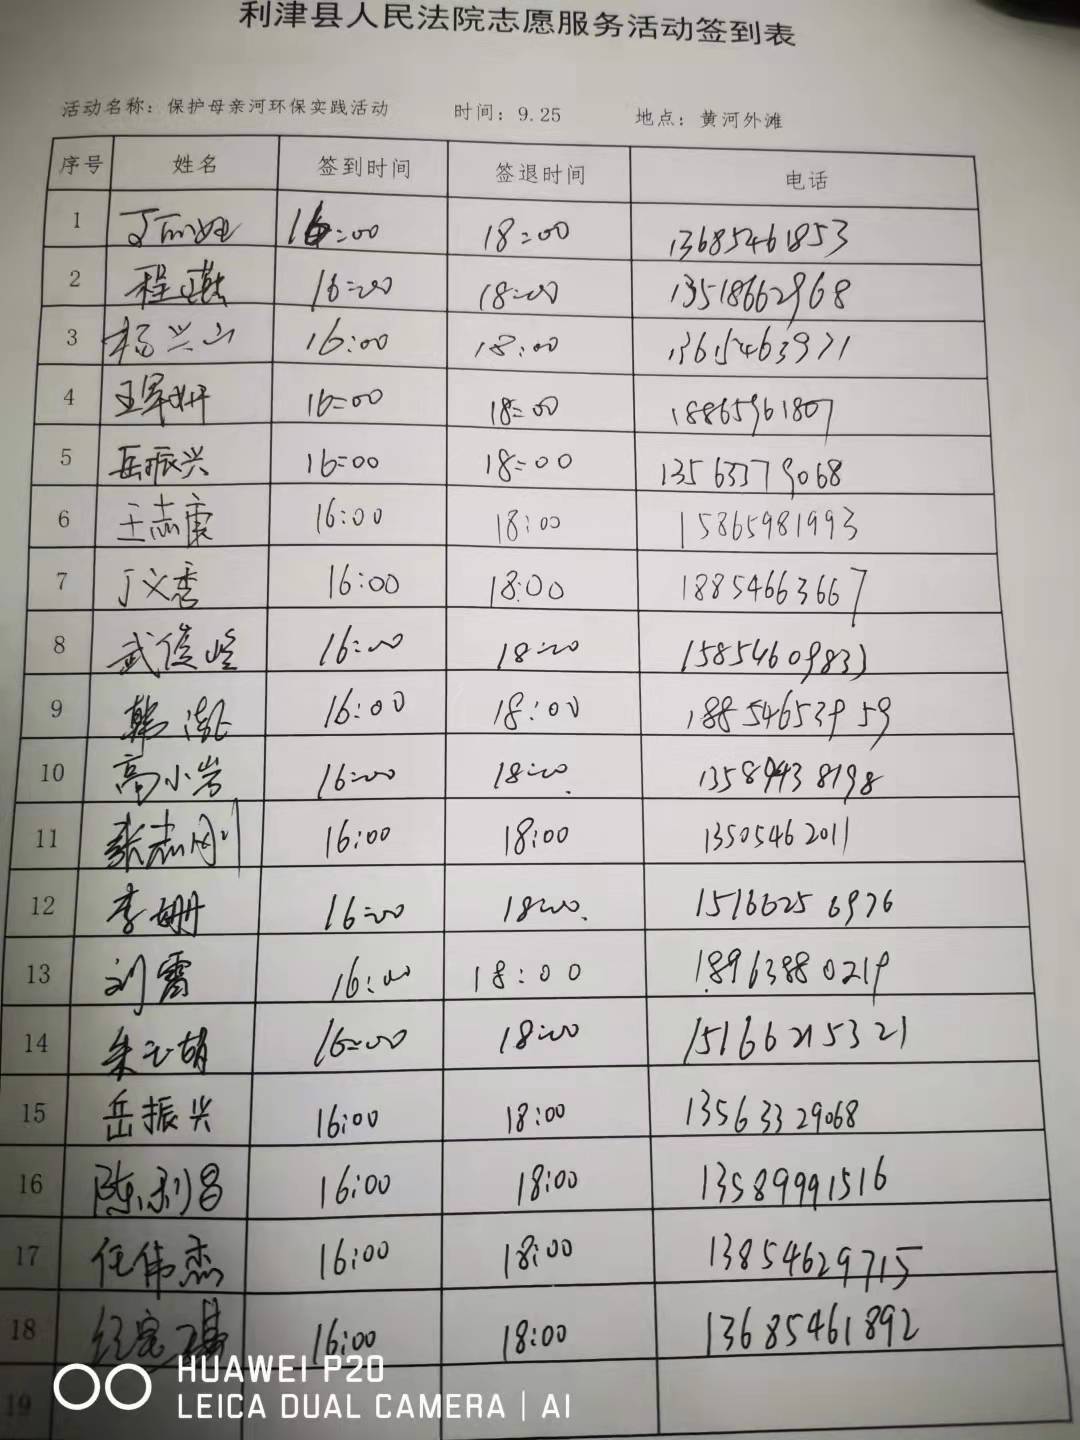 利津县人民法院志愿服务活动签到表
活动名称：保护母亲河环保实践活动 时间：9.25 地点：黄河外滩
序号 姓名 签到时间 签退时间 电话
1 16:00 18:00 13685461853
2 16:00 18:00 13518662968
3 杨兴山 16:00 18:00 13615463971
4 16:00 18:00 18865961807
5 岳振兴 16:00 18:00
6 王志康 16:00 18:00 15865981993
7 丁文秀 16:00 18:00 18854663667
8 武俊峰 16:00 18:00 15854609833
9 韩 16:00 18:00 18854653959
10 高小岩 16:00 18:00 13589438198
11 张志刚 16:00 18:00 13505462011
12 李姗 16:00 18:00 15166256976
13 刘霄 16:00 18:00 18963880219
14 16:00 18:00 15166215321
15 岳振兴 16:00 18:00 13563329068
16 陈利昌 16:00 18:00 13589991516
17 任伟杰 16:00 18:00 13854629715
18 16:00 18:00 13685461892
19
HUAWEI P20
LEICA DUAL CAMERA | AI